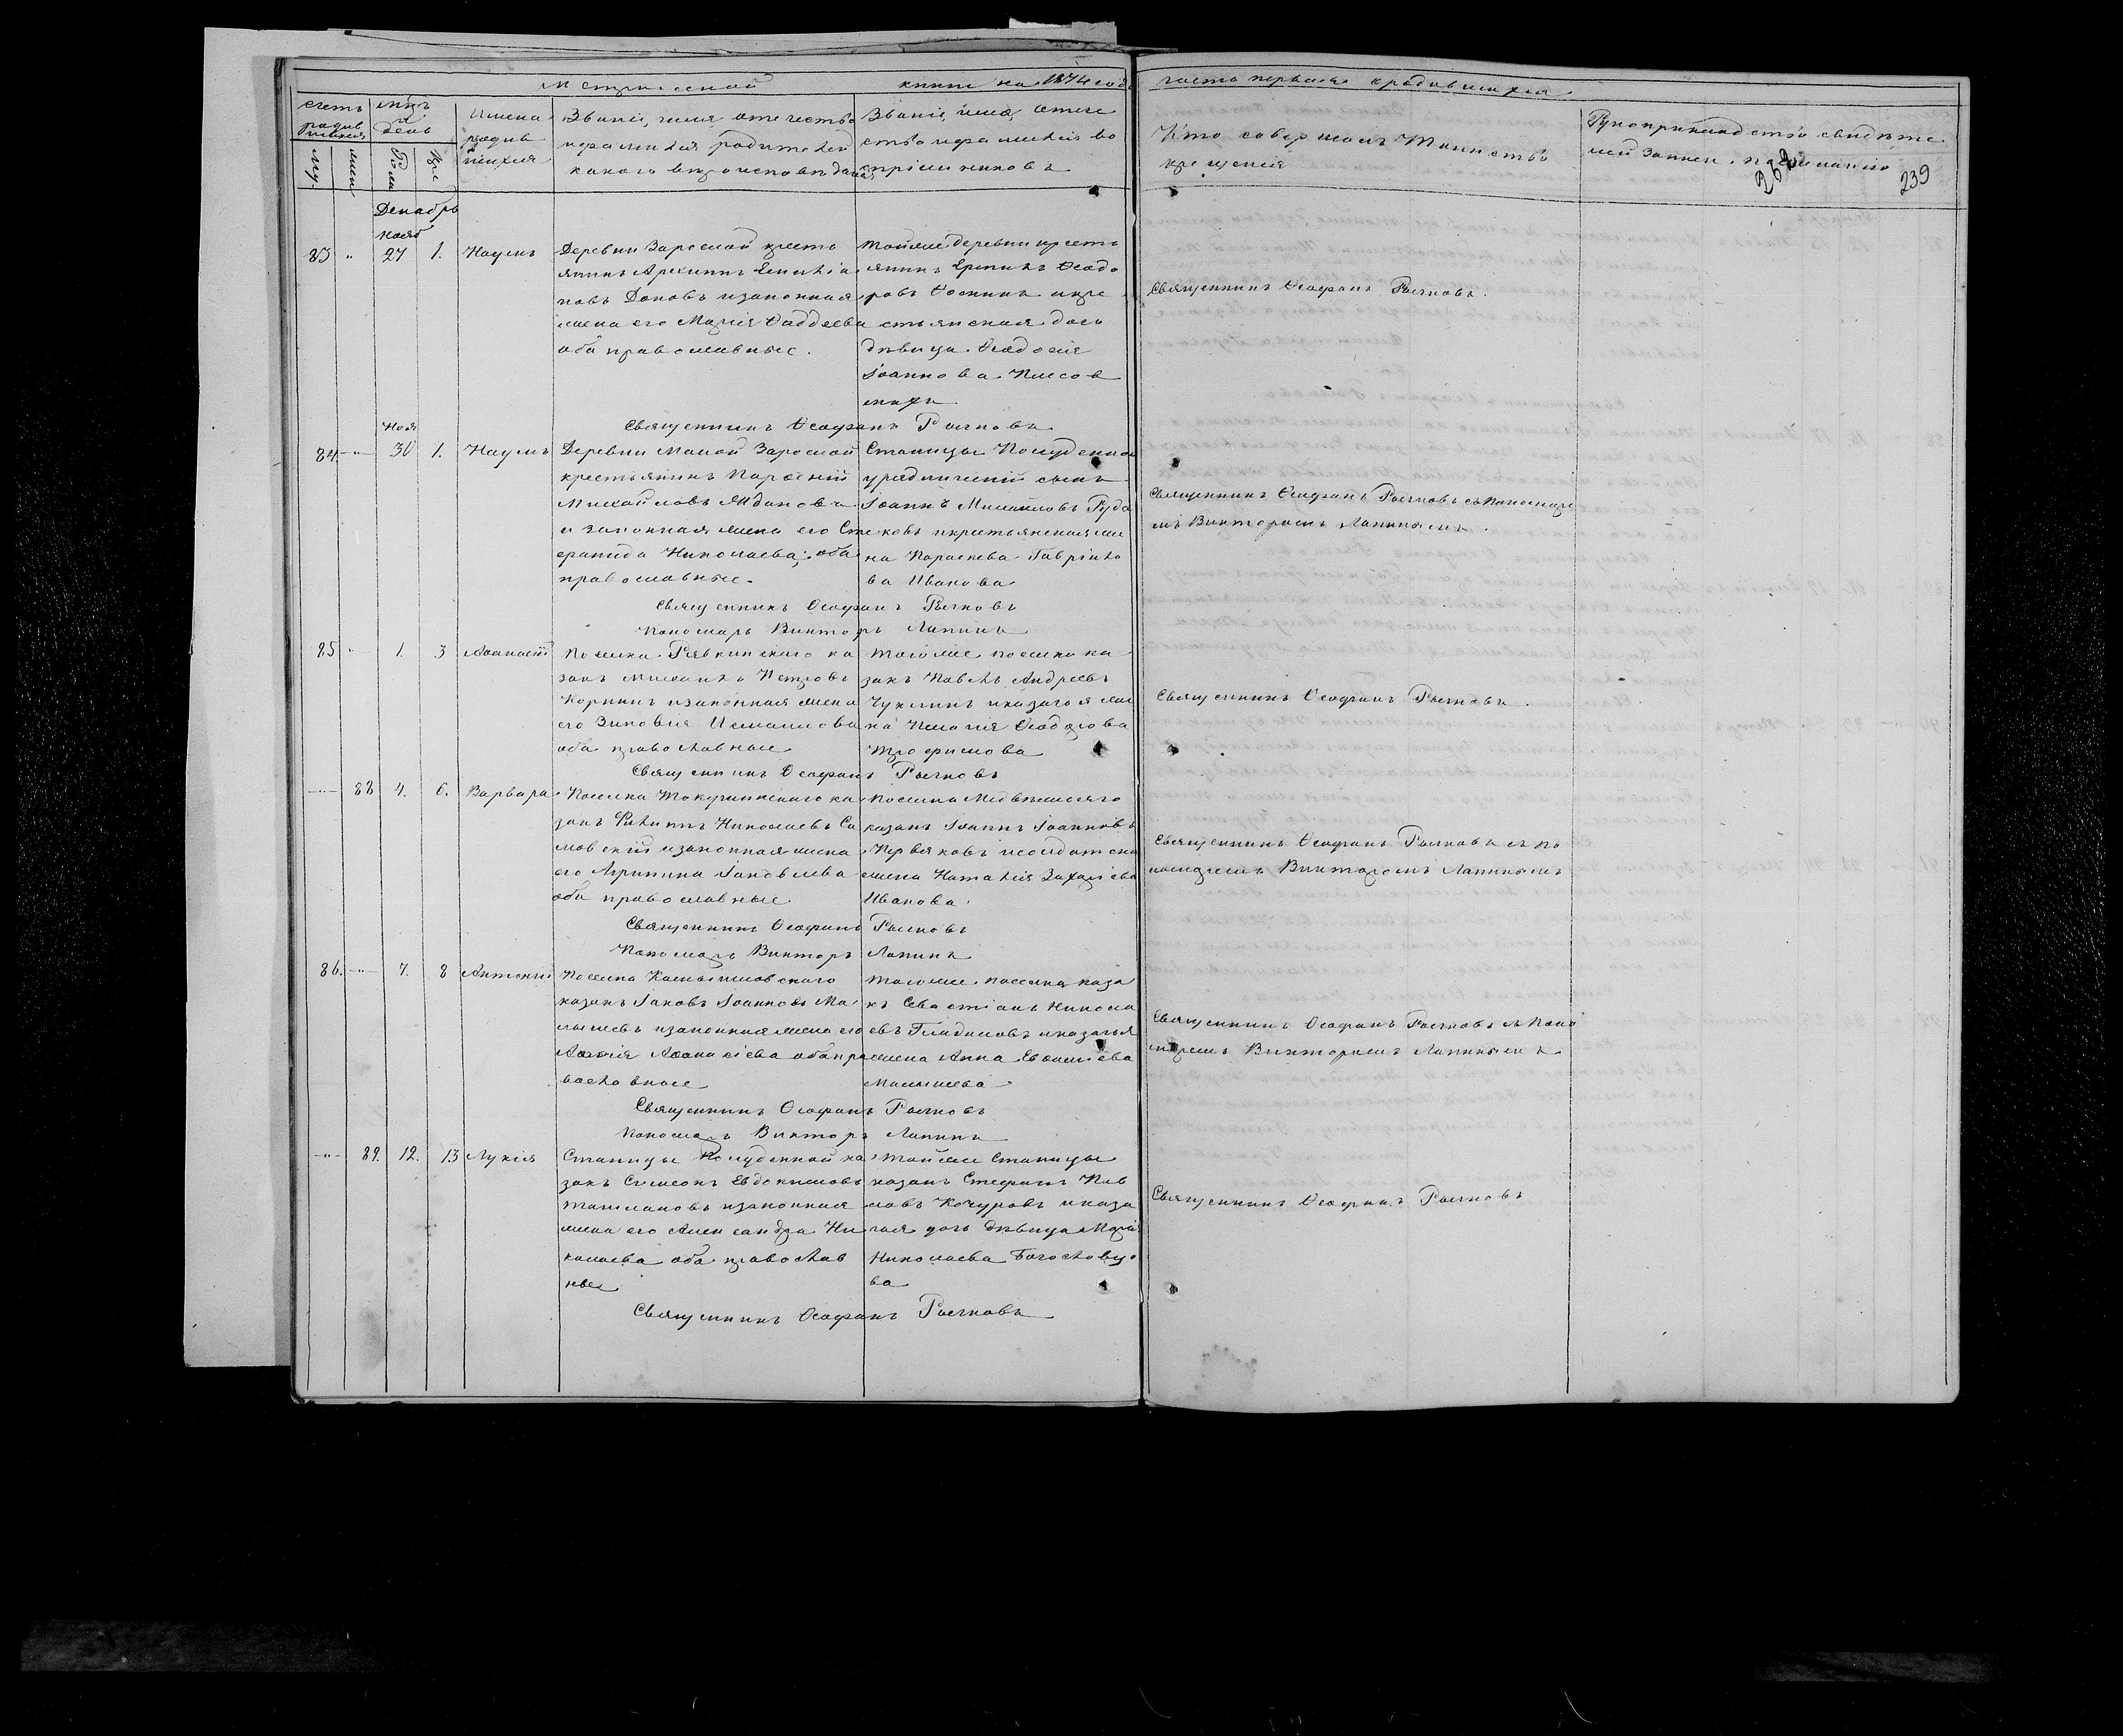 Метрической книги на 1874 годъ часть первая о родившихся
Счетъ родившихся
муж.
жен.
Мѣс. и день
Рож.
Кре.
Имена родившихся
Званіе, имя, отчество
и фамилія родителей
какого вѣроисповѣданія
Званіе, имя, отече
ство и фамилія во
спріемниковъ
Кто совершалъ Таинство
крещенія
Рукоприкладство свидѣте
лей записи по желанію
239
Декабрь
Нояб
83 " 27 1. Наумъ
Деревни Зарослой кресть
янинъ Архиппъ Емилiа
новъ Доновъ и законная
жена его Марія Фаддеева
оба православные.
Той же деревни кресть
янинъ Ермилъ Ѳеодо
ровъ Ѳоминъ и кре
стьянская дочь
дѣвица Ѳеодосія
Іоаннова
Священникъ Ѳеофанъ Рычковъ.
Священникъ Ѳеофанъ Рычковъ
Ноя
84. " 30 1. Наумъ
Деревни Малой Зарослой
крестьянинъ Парѳеній
Михайловъ Ждановъ
и законная жена его Сте
фанида Николаева; оба
православные.
Станицы Полуденной
урядничій сынъ
Іоаннъ Михаиловъ Руда
ковъ и крестьянская же
на Параскева Гавріило
ва Иванова
Священникъ Ѳеофанъ Рычковъ съ Пономаре
мъ Викторомъ Лапинымъ.
Священникъ Ѳеофанъ Рычковъ
Пономарь Викторъ Лапинъ
85 " 1. 3 Аѳанасій
Поселка Рявкинскаго ка
закъ Михаилъ Петровъ
Коркинъ и законная жена
его Зиновія Измаилова
оба православные
Того же поселка ка
закъ Павелъ Андреевъ
Чукминъ и казачья же
на Ѳеодорова
Трофимова
Священникъ Ѳеофанъ Рычковъ.
Священникъ Ѳеофанъ Рычковъ
" 88 4. 6. Варвара
Поселка Токушинскаго ка
закъ Филиппъ Николаевъ Са
мовскій и законная жена
его Агрипина Іаковлева
оба православные.
Поселка Медвѣжьяго
казакъ Іоаннъ Іоанновъ
Первяковъ и солдатска
жена Наталія Захаріева
Иванова.
Священникъ Ѳеофанъ Рычковъ съ по
номаремъ Викторомъ Лапинымъ
Священникъ Ѳеофанъ Рычковъ
Пономарь Викторъ Лапинъ
86. " 7. 8 Антоній
Поселка Камышловскаго
казакъ Іаковъ Іоанновъ Ма
лышевъ и законная жена его
Аѳанасіева оба пра
вославные
Того же поселка каза
къ Севастіанъ Никола
евъ Гладиловъ и казачья
жена Анна Евѳиміева
Малышева
Священникъ Ѳеофанъ Рычковъ съ Поно
маремъ Викторомъ Лапинымъ
Священникъ Ѳеофанъ Рычковъ
Пономарь Викторъ Лапинъ
" 89. 12. 13 Лукія
Станицы Полуденной ка
закъ Симеонъ Евдокимовъ
и законная
жена его Александра Ни
колаева оба православ
ные
Той же Станицы
казакъ Стефанъ Пав
ловъ Кочуровъ и каза
чья дочь дѣвица Марія
Николаева Богословцо
ва
Священникъ Ѳеофанъ Рычковъ
Священникъ Ѳеофанъ Рычковъ